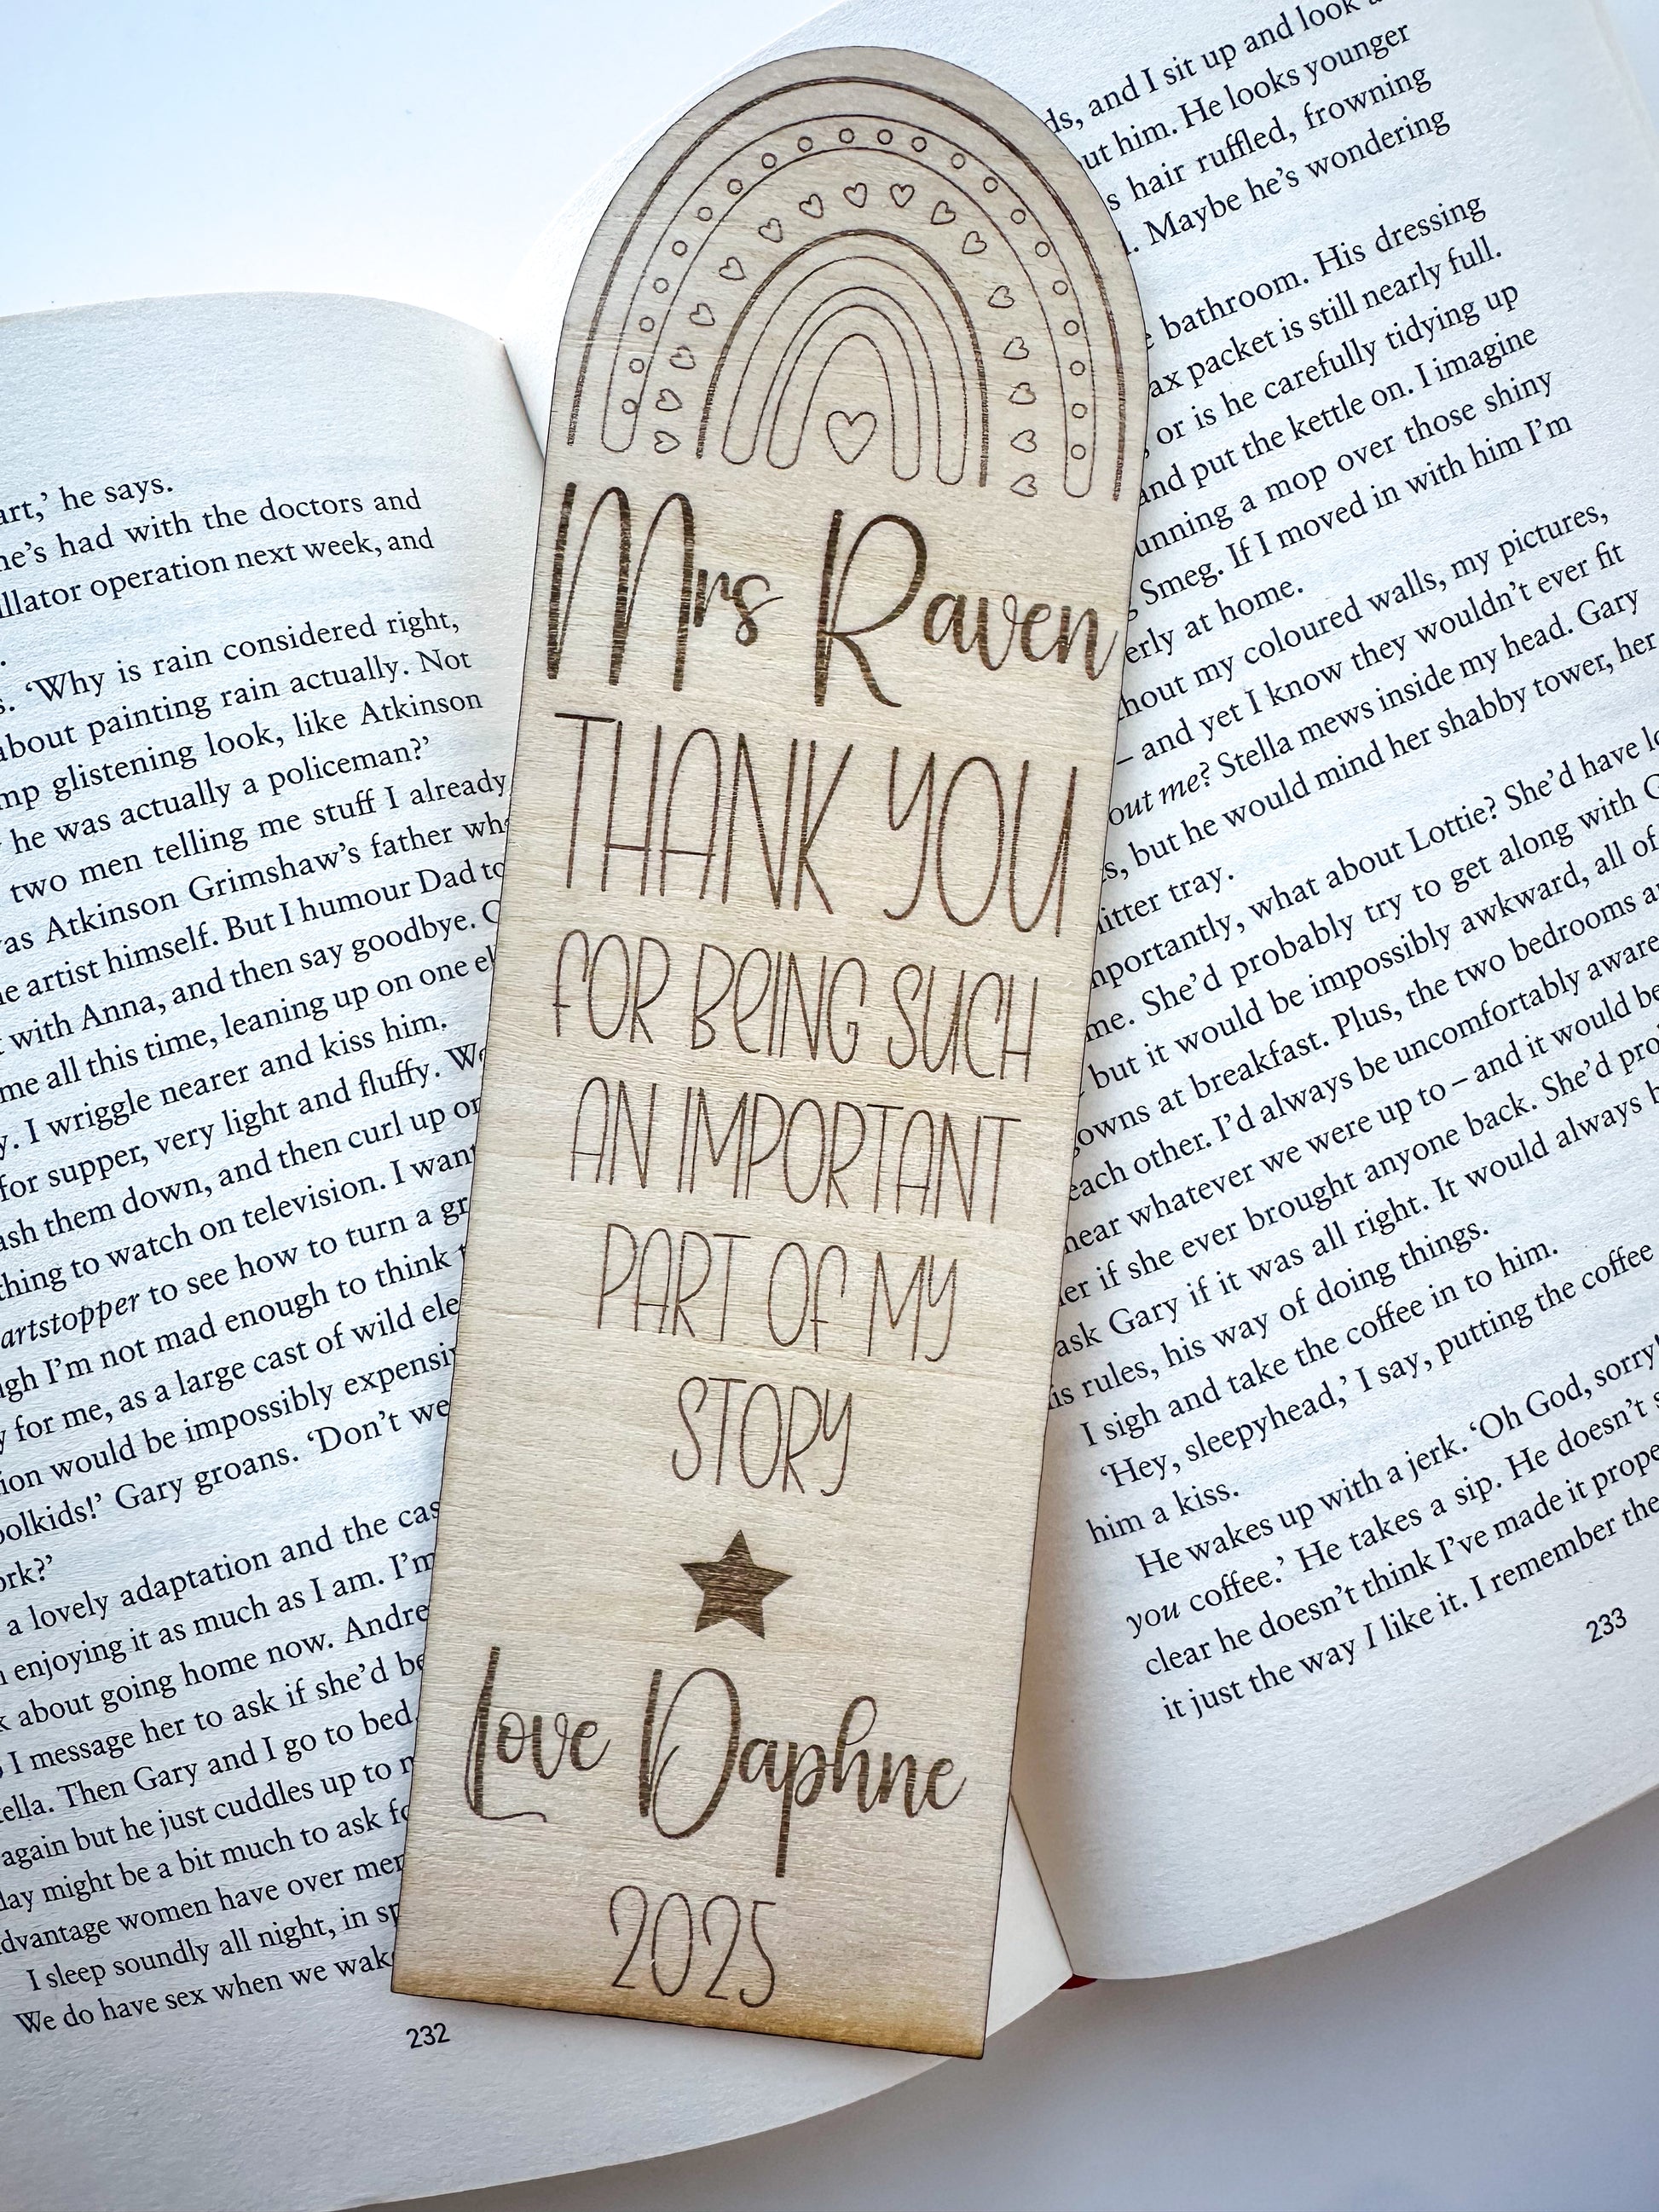 Mrs Raven
THANK YOU
FOR BEING SUCH
AN IMPORTANT
PART OF MY
STORY
Love Daphne
2025
art,' he says.
he's had with the doctors and
operation next week, and
'Why is rain considered right,
about painting rain actually. Not
glistening look, like Atkinson
he was actually a policeman?'
two men telling me stuff I already
Atkinson Grimshaw's father
artist himself. But I humour Dad
with Anna, and then say goodbye.
me all this time, leaning up on one
I wriggle nearer and kiss him.
for supper, very light and fluffy.
them down, and then curl up
to watch on television. I
to see how to turn a
I'm not mad enough to think
for me, as a large cast of wild
would be impossibly
Gary groans. 'Don't
a lovely adaptation and the
enjoying it as much as I am. I'm
about going home now.
I message her to ask if she'd
Then Gary and I go to bed.
again but he just cuddles up to
might be a bit much to ask
women have over
I sleep soundly all night, in
We do have sex when we
232
and I sit up and look
him. He looks younger
hair ruffled, frowning
Maybe he's wondering
bathroom. His dressing
packet is still nearly full.
or is he carefully tidying up
and put the kettle on. I imagine
a mop over those shiny
Smeg. If I moved in with him I'm
at home.
my coloured walls, my pictures,
– and yet I know they wouldn't ever fit
out me? Stella mews inside my head. Gary
but he would mind her shabby tower, her
tray.
what about Lottie? She'd have
me. She'd probably try to get along with
but it would be impossibly awkward, all of
at breakfast. Plus, the two bedrooms
each other. I'd always be uncomfortably aware
hear whatever we were up to – and it would be
if she ever brought anyone back. She'd
ask Gary if it was all right. It would always
rules, his way of doing things.
I sigh and take the coffee in to him.
'Hey, sleepyhead,' I say, putting the coffee
him a kiss.
He wakes up with a jerk. 'Oh God, sorry!
you coffee.' He takes a sip. He doesn't
clear he doesn't think I've made it
it just the way I like it. I remember the
233